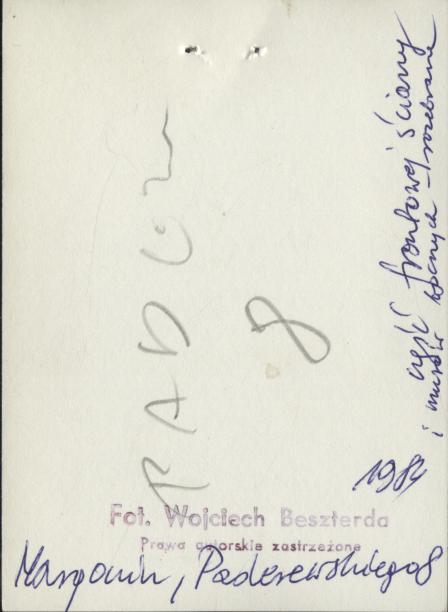 część frontowej ściany
i murów bocznych – rozebrane
8
1984
Fot. Wojciech Beszterda
Prawa autorskie zastrzeżone
Margonin, Paderewskiego 8